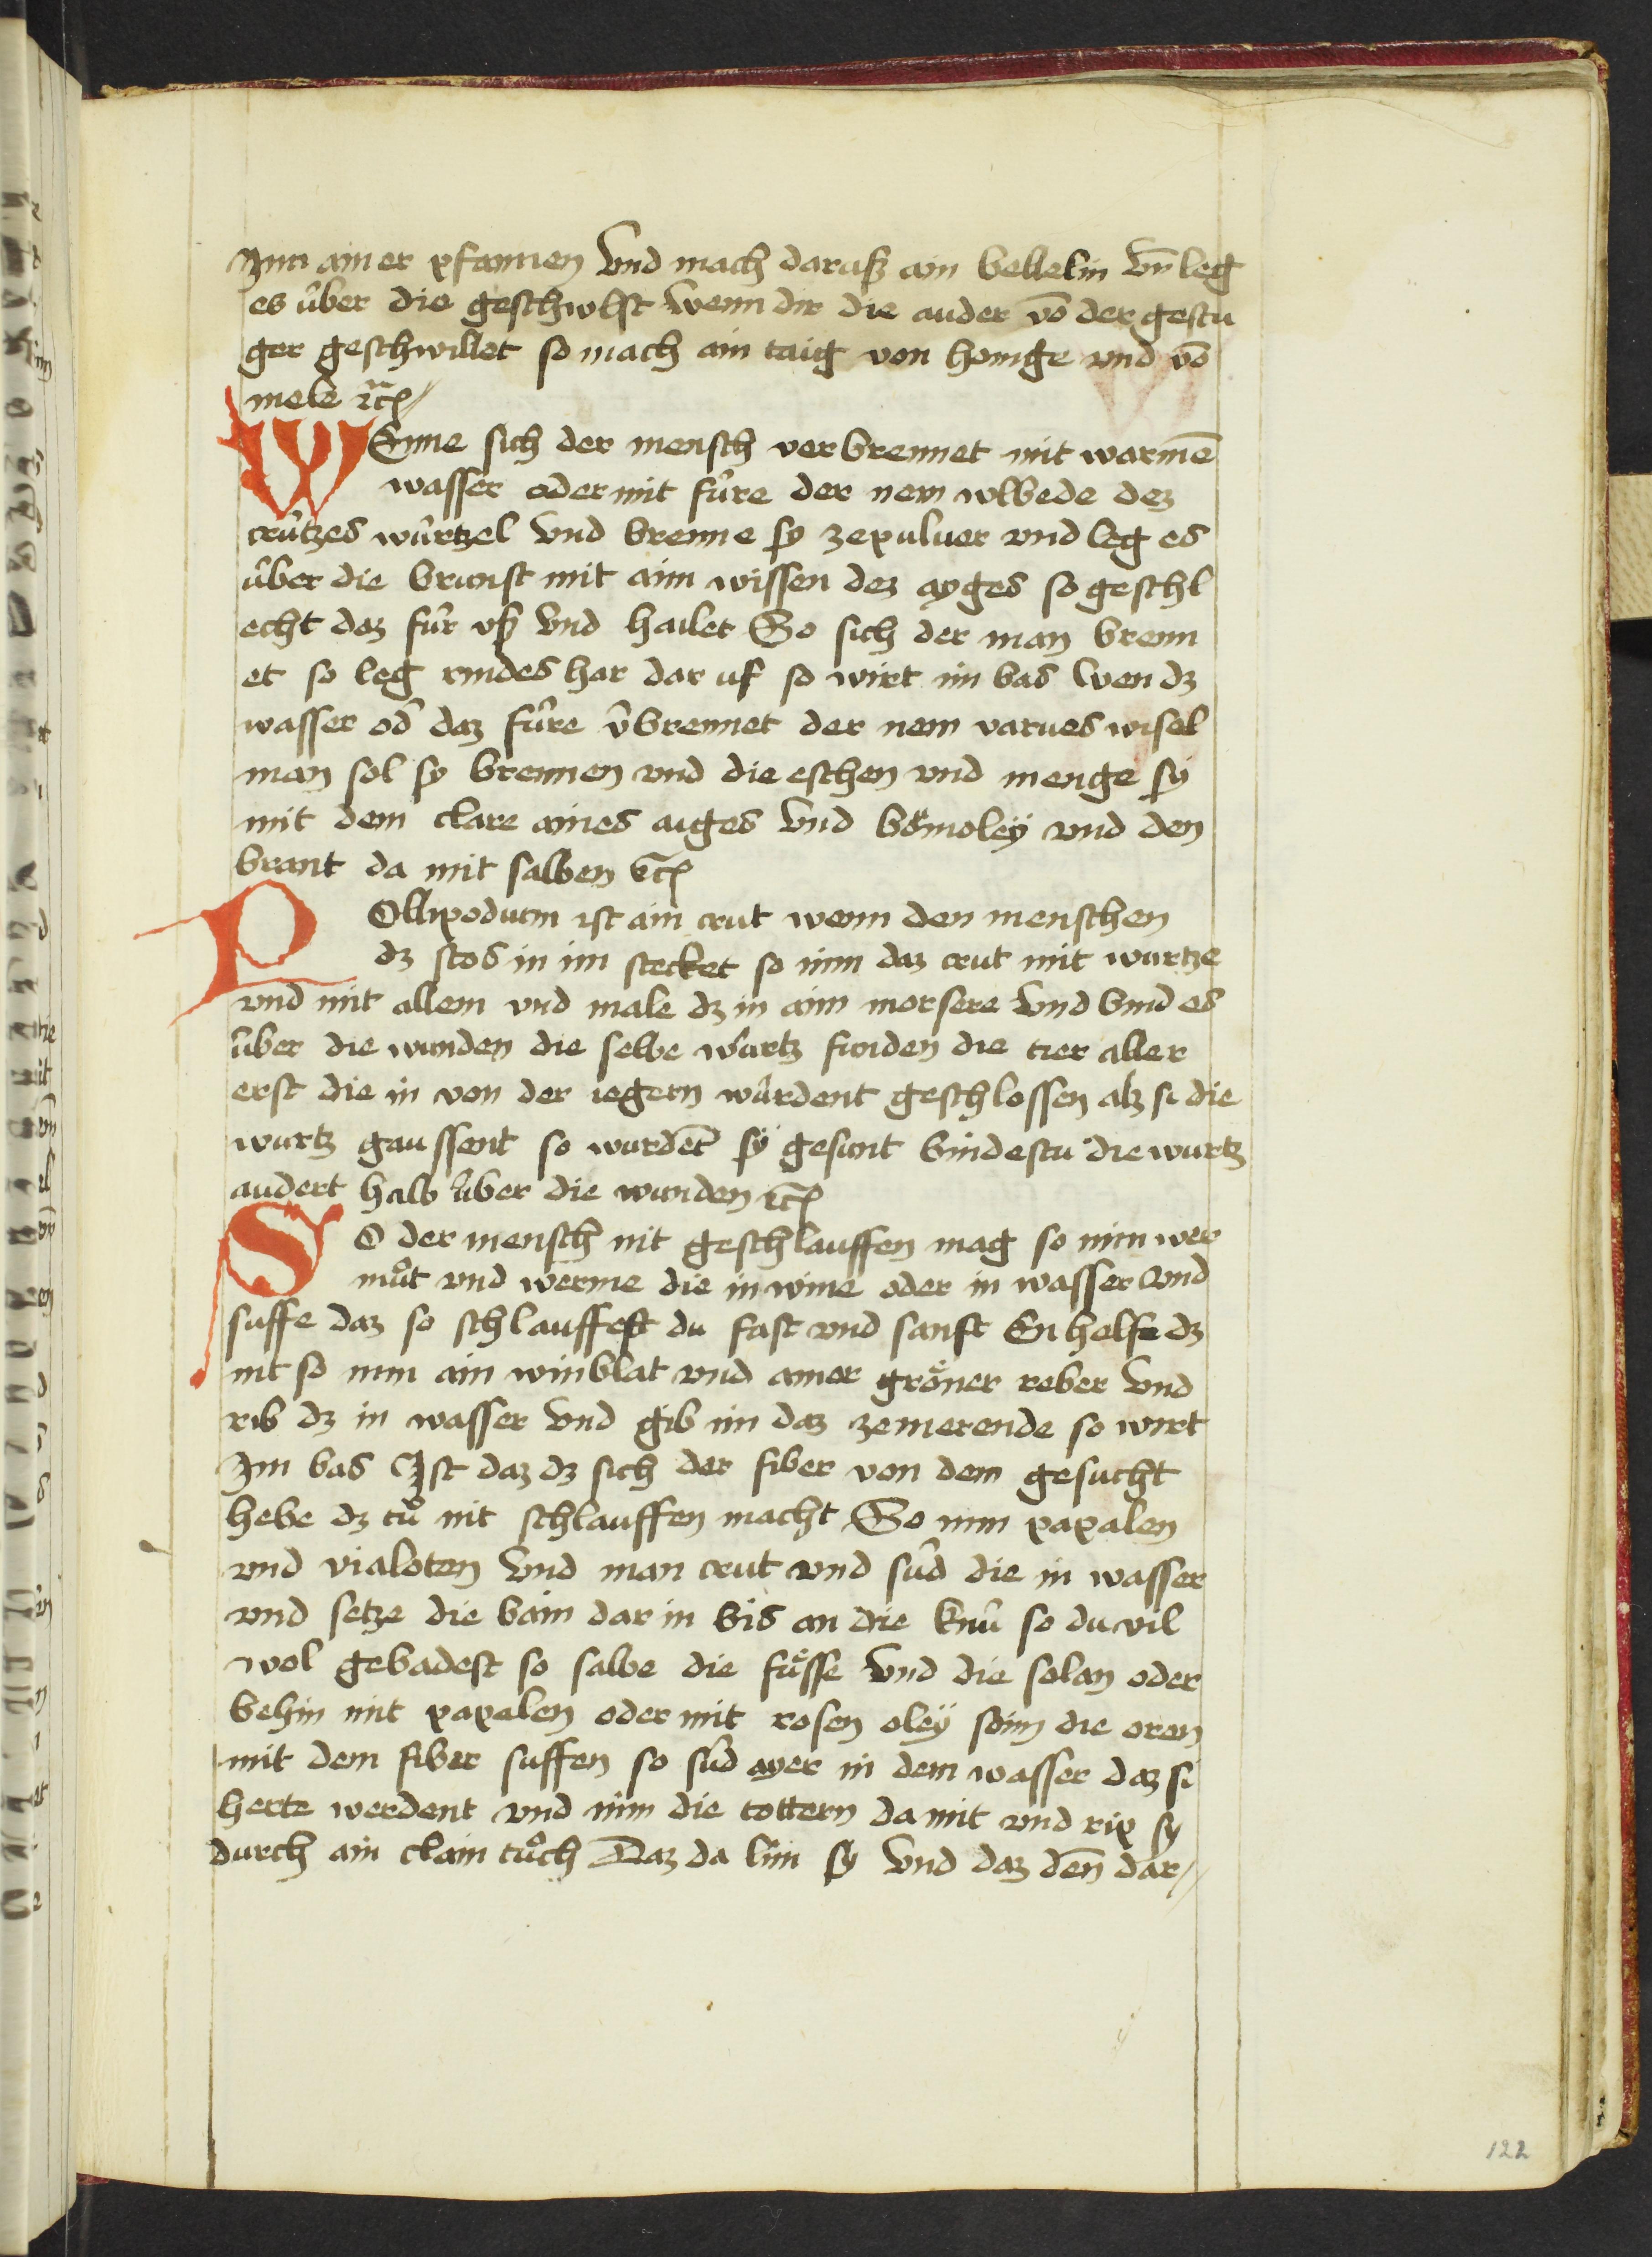 Inn ainer pfannen vnd mach daruß ain bellelin vn̄ leg
es über die geschwlst wenn dir die auder vō der gestu
ger geschwillet so mach ain taig von honige vnd vō
mele ꝛc̄
WEnne sich der mensch verbrennet mit warmē
wasser oder mit fúre der nem wlbede dez
crútzes wúrtzel vnd brenne sy zepuluer vnd leg es
über die brunst mit aim wissen dez ayges so geschl
echt daz fúr vß vnd hailet So sich der man brenn
et so leg rindes har dar uf so wirt im bas wen dz
wasser od̄ daz fúre v̄brennet der nem varues wisel
man sol sy brennen vnd die eschen vnd menge sÿ
mit dem clare aines aiges vnd bömoleÿ vnd den
brant da mit salben ꝛc̄
POllipodium ist ain crut wenn den menschen
dz stos in im stecket so nim daz crut mit wurtze
vnd mit allem vnd male dz in aim morsere vnd bind es
über die wunden die selbe wúrtz funden die tier aller
erst die in von der iegern wúrdent geschlossen alz si die
wurtz gaussent so wurdēt sÿ gesunt bindestu die wurtz
audert halb über die wunden ꝛc̄
SO der mensch nit geschlauffen mag so nim wer
mût vnd werme die in wine oder in wasser vnd
suffe daz so schlauffest du fast vnd sanft En helfe dz
nit so nim ain winblat vnd ainer gröner reber vnd
rib dz in wasser vnd gib im daz zemerende so wirt
Im bas Ist daz dz sich der fiber von dem gesucht
hebe dz tů nit schlauffen macht So nim papalen
vnd vialoten vnd man crut vnd súd die in wasser
vnd setze die bain dar in bis an die knú so du vil
wol gebadest so salbe die fůsse vnd die solan oder
behin mit papalen oder mit rosen oleÿ söim die oren
mit dem fiber suffen so súd ayer in dem wasser daz si
herte werdent vnd nim die tottern da mit vnd rip sy
durch ain clain tůch Daz da lim sÿ vnd daz den̄ dar
122